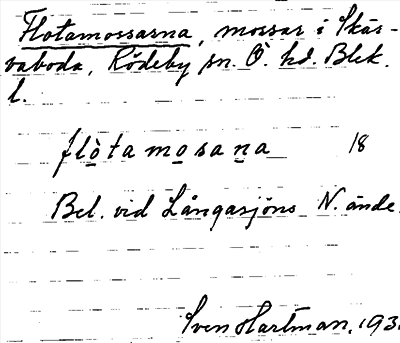 Flotamossarna, mossar i Skär-
vaboda, Rödeby sn. Ö. hd. Blek.
l.
flòtamosana 18
Bel. vid Långasjöns N. ände.
Sven Hartman, 193